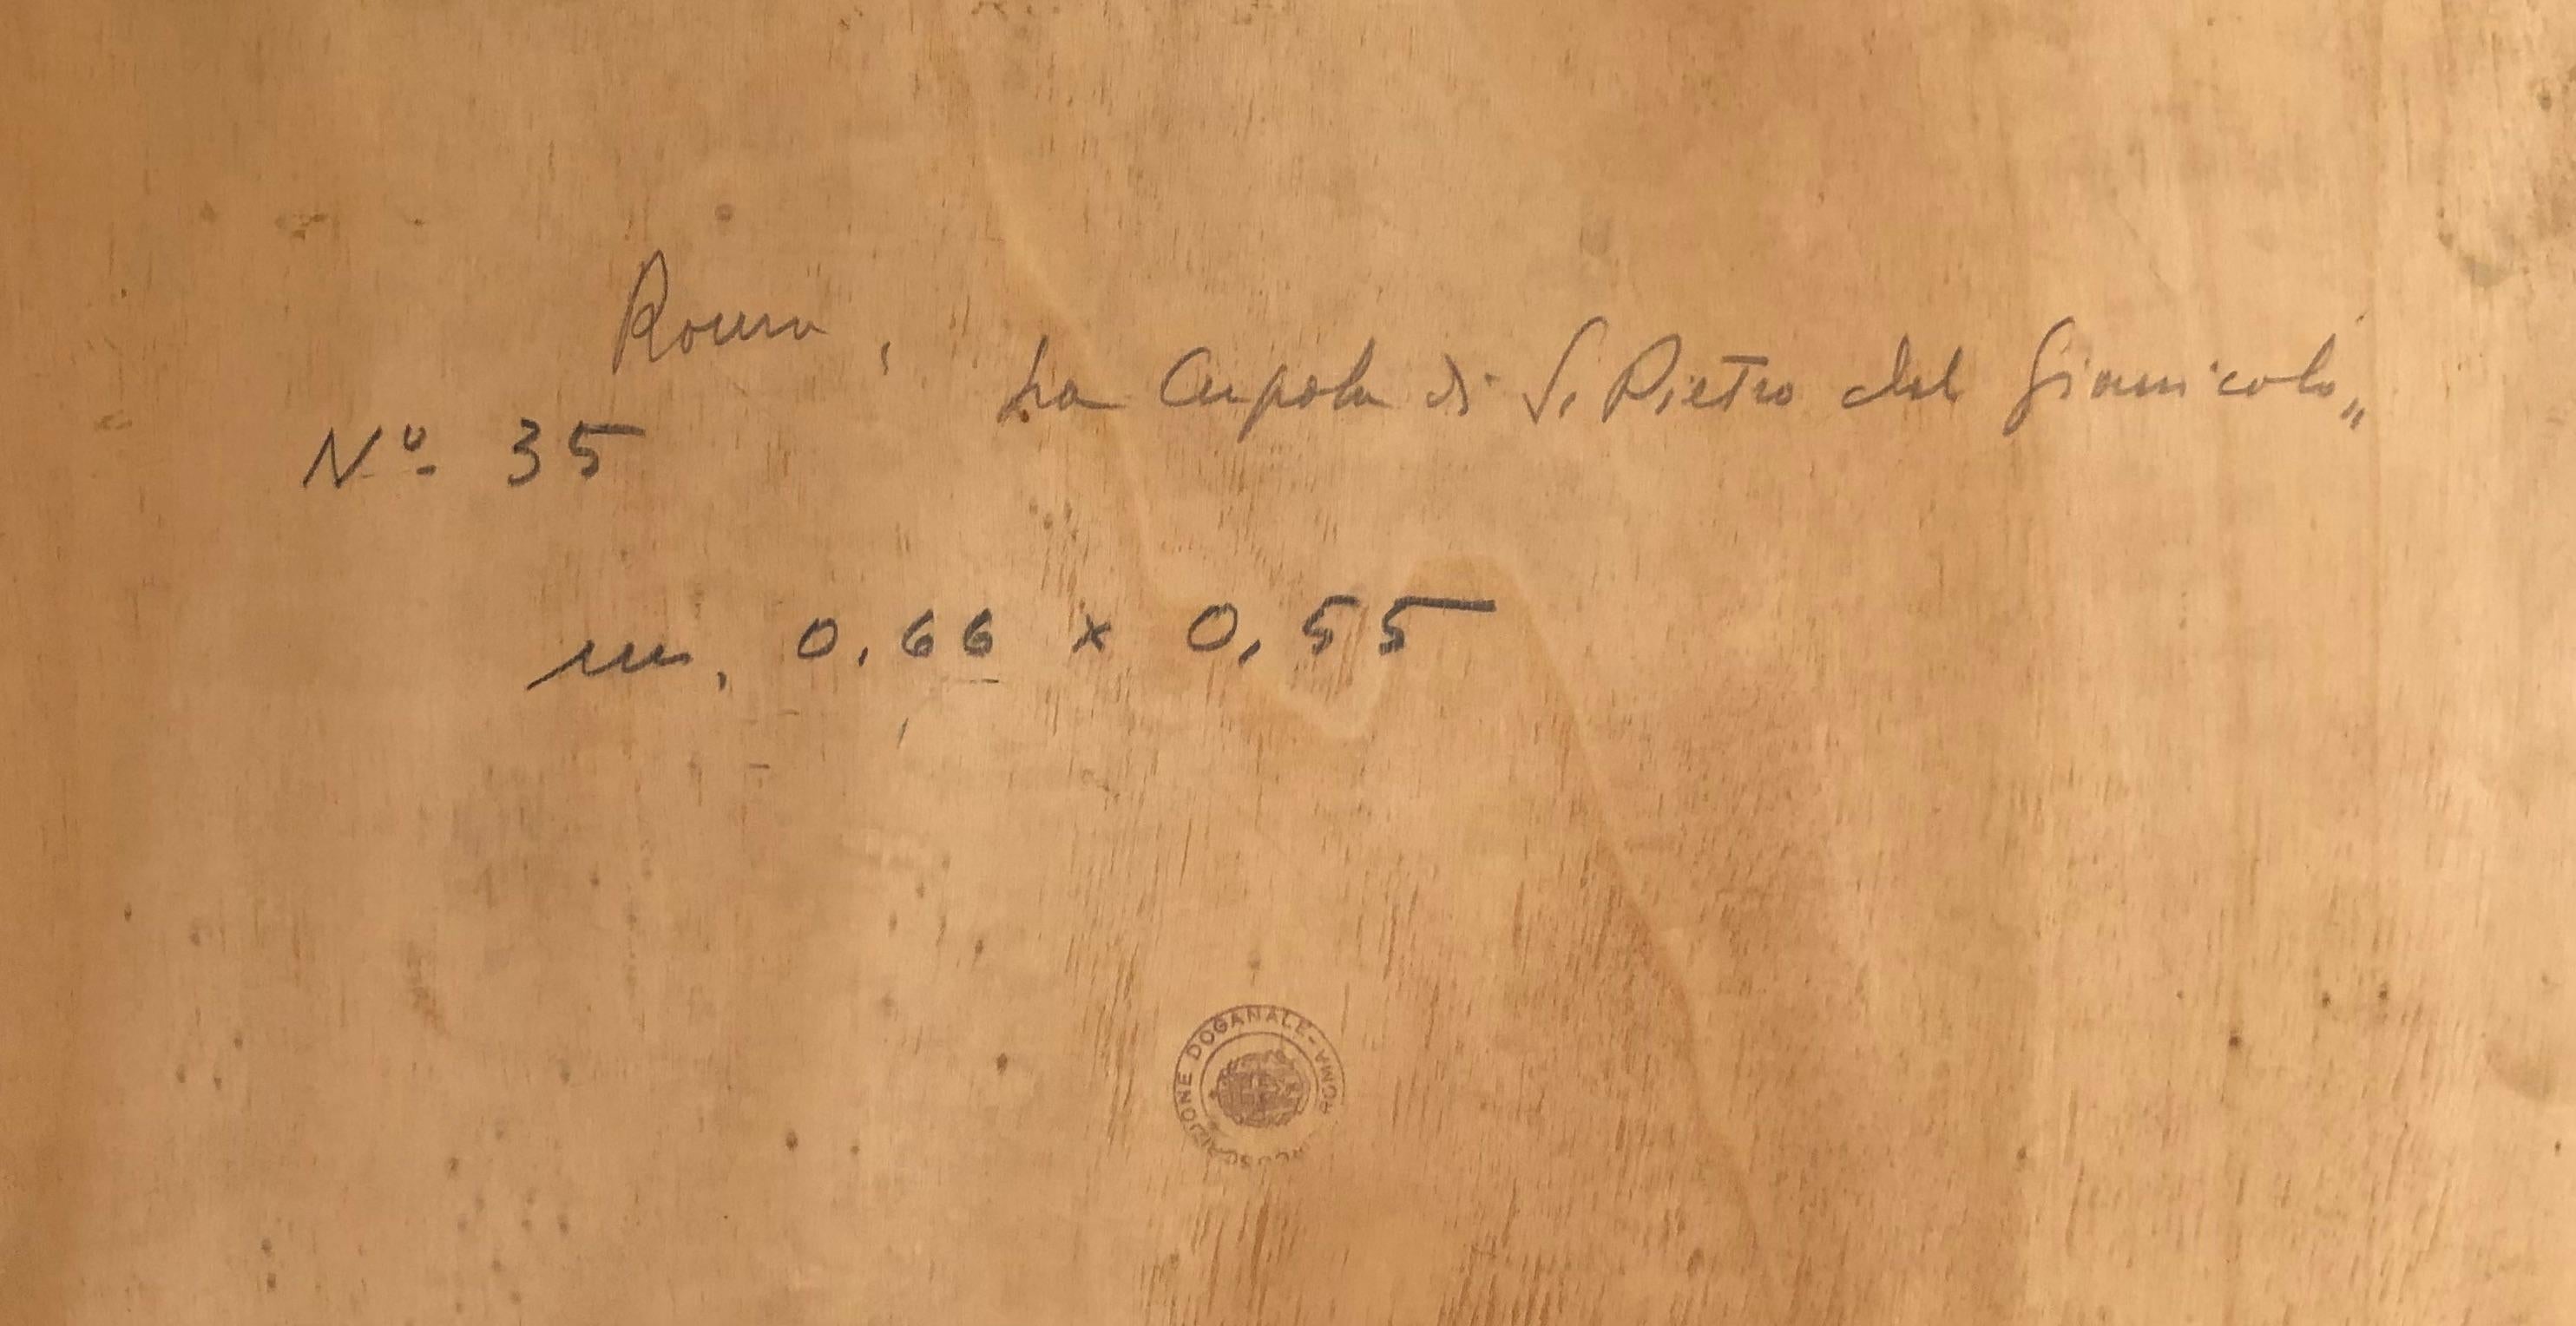 Roma, La Cupola di S. Pietro dal Gianicolo„
Nº 35
m. 0.66 x 0,55
CIRCOSCRIZIONE DOGANALE - ROMA